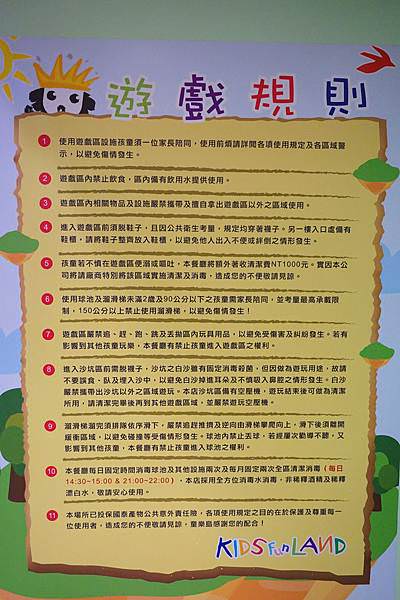 遊戲規則
1 使用遊戲區設施孩童須一位家長陪同，使用前煩請詳閱各項使用規定及各區域警
示，以避免傷情發生。
2 遊戲區內禁止飲食，區內備有飲用水提供使用。
3 遊戲區內相關物品及設施嚴禁攜帶及擅自拿出遊戲區以外之區域使用。
4 進入遊戲前須脫鞋子，且因公共衛生考量，規定均穿著襪子。另一樓入口處備有
鞋櫃，請將鞋子整齊放入鞋櫃，以避免他人出入不便或絆倒之情形發生。
5 孩童若不慎在遊戲區便溺或嘔吐，本餐廳將額外著收清潔費NT1000元。實因本公
司將請廠商特別將該區域實施清潔及消毒，造成您的不便敬請見諒。
6 使用球池及溜滑梯未滿2歲及90公分以下之孩童需家長陪同，並考量最高承載限
制，150公分以上禁止使用溜滑梯，以避免傷情發生！
7 遊戲區嚴禁追、趕、跑、跳及丟拋區內玩具用品，以避免受傷害及糾紛發生。若有
影響到其他孩童玩樂，本餐廳有禁止孩童進入遊戲區之權利。
8 進入沙坑區前需脫襪子，沙坑之白沙雖有固定消毒殺菌，但因做為遊玩用途，故請
不要誤食、臥及埋入沙中，以避免白沙掉進耳朵及不慎吸入鼻腔之情形發生。白沙
嚴禁攜帶出沙坑以外之區域遊玩。本店沙坑區備有空壓機，遊玩結束後可做為清潔
所用，請清潔完畢後再到其他遊戲區域，並嚴禁遊玩空壓機。
9 溜滑梯溜完須排隊依序滑下，嚴禁追趕推擠及逆向由滑梯攀爬向上，滑下後須離開
緩衝區域，以避免碰撞等受傷情形發生。球池內禁止丟球，若經屢次勸導不聽，又
影響到其他孩童，本餐廳有禁止孩童進入球池之權利。
10 本餐廳每日固定時間消毒球池及其他設施兩次及每月固定兩次全區清潔消毒（每日
14:30~15:00 & 21:00~22:00），本店採用全方位消毒水消毒，非稀釋酒精及稀釋
漂白水，敬請安心使用。
11 本場所已投保國泰產物公共意外責任險，各項使用規定之目的在於保護及尊重每一
位使用者，造成您的不便敬請見諒，童樂島感謝您的配合！
KIDS Fun LAND